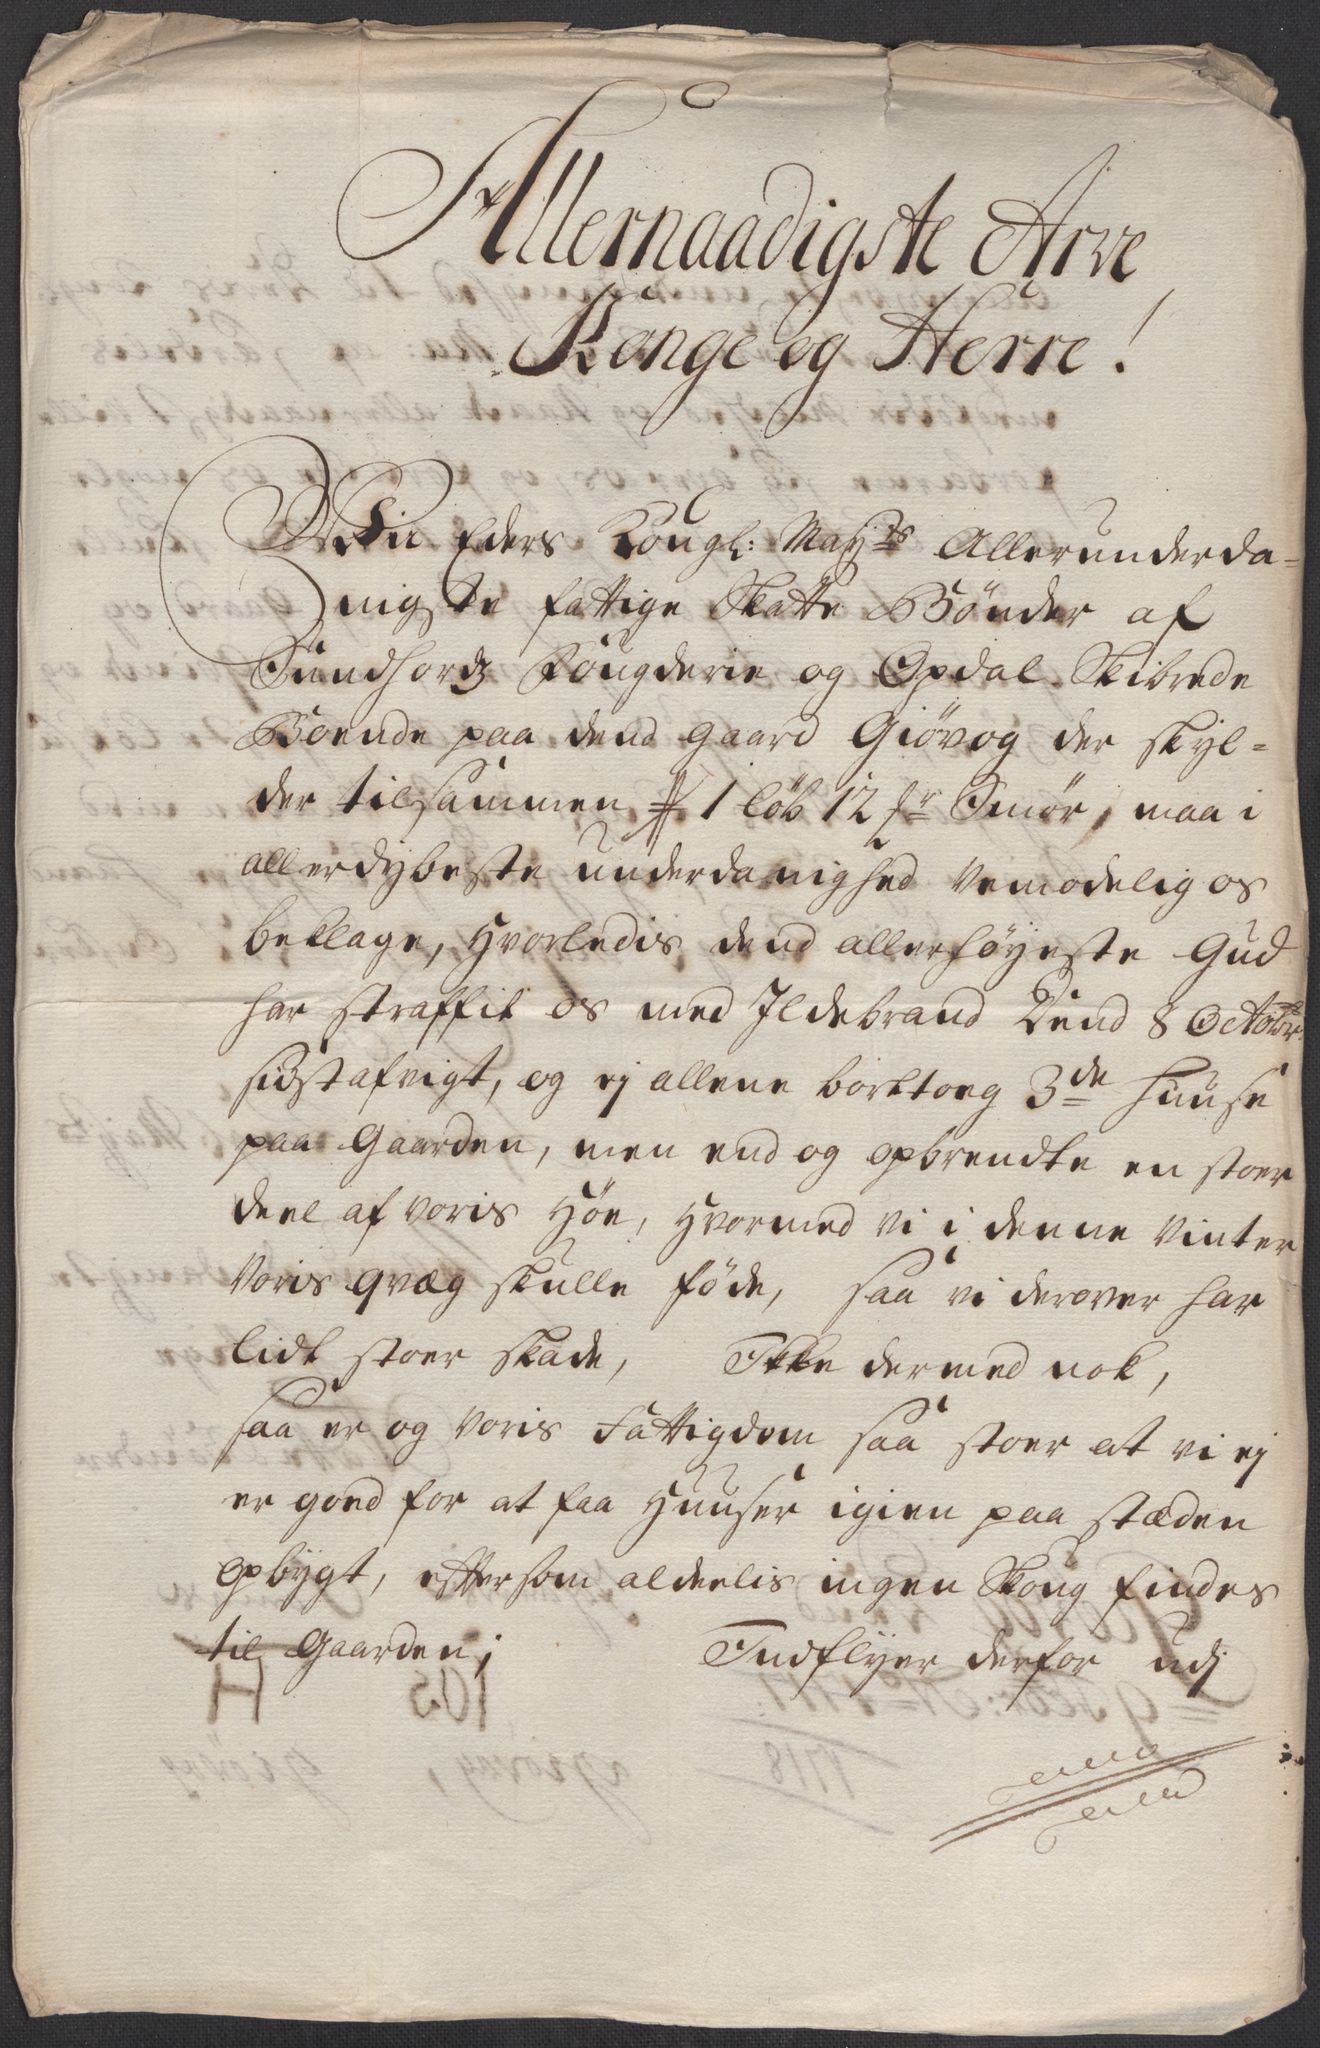 Allernaadigste Arve
Konge og Herre!
Wii Eders Kongl: Mayts Allerunderda=
nigste fattige Skatte Bønder af
Sundhordz Fougderie og Opdal Skibrede
Boende paa dend gaard Giøvog der skyl=
der tilsammen 1 løb 12 mr Smør, maa i
allerdybeste underdanighed vemodelig os
beklage, hvorledis dend allerhøyeste Gud
har straffit os med Ildebrand Dend 8 Octobr:
sidstafvigt, og ej allene borttoeg 3de huuse
paa Gaarden, men end og opbrendte en stoer
deel af voris Høe, hvormed vi i denne vinter
voris qvæg skulle føde, saa vi derover har
lidt stoer skade, Ikke dermed nok,
saa er og voris fattigdom saa stoer at vi ej
er goed for at faa huuser igien paa stæden
opbygt, eftersom aldeelis ingen Skoug findes
til Gaarden; Indflyer derfor udj